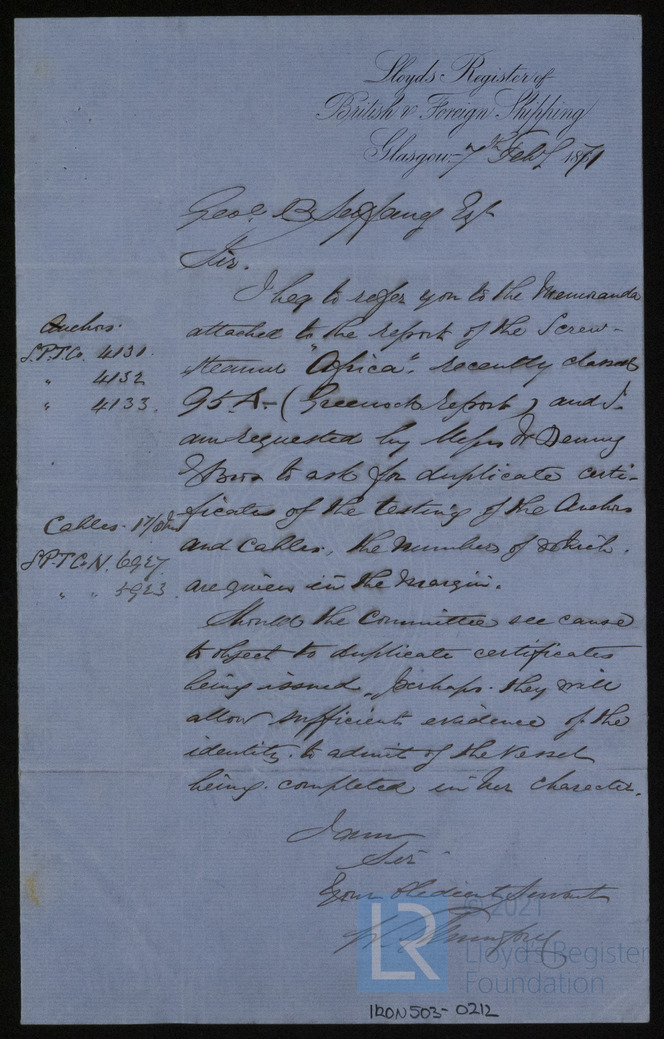 Lloyds Register of
British & Foreign Shipping
Glasgow 7th Feby 1871
Geo. B. Seyfang Esq
Sir.
I beg to refer you to the Memoranda
attached to the report of the Screw-
steamer "Africa", recently classed
95A- (Greenock Report) and I
am requested by Messrs W Denny
& Bros to ask for duplicate certi-
ficates of the testing of the Anchors
and Cables, the numbers of which
are given in the margin.
Anchors.
S.P.T.Co. 4131.
" 4132
" 4133.
Cables. 17/
S.P.T.Co. N. 6927
" " 5923
Should the Committee see cause
to object to duplicate certificates
being issued, perhaps they will
allow sufficient evidence of the
identity to admit of the vessel
being completed in her character.
I am
Sir
Your obedient Servant
LR
© 2021
Lloyd's Register
Foundation
IRON503-0212